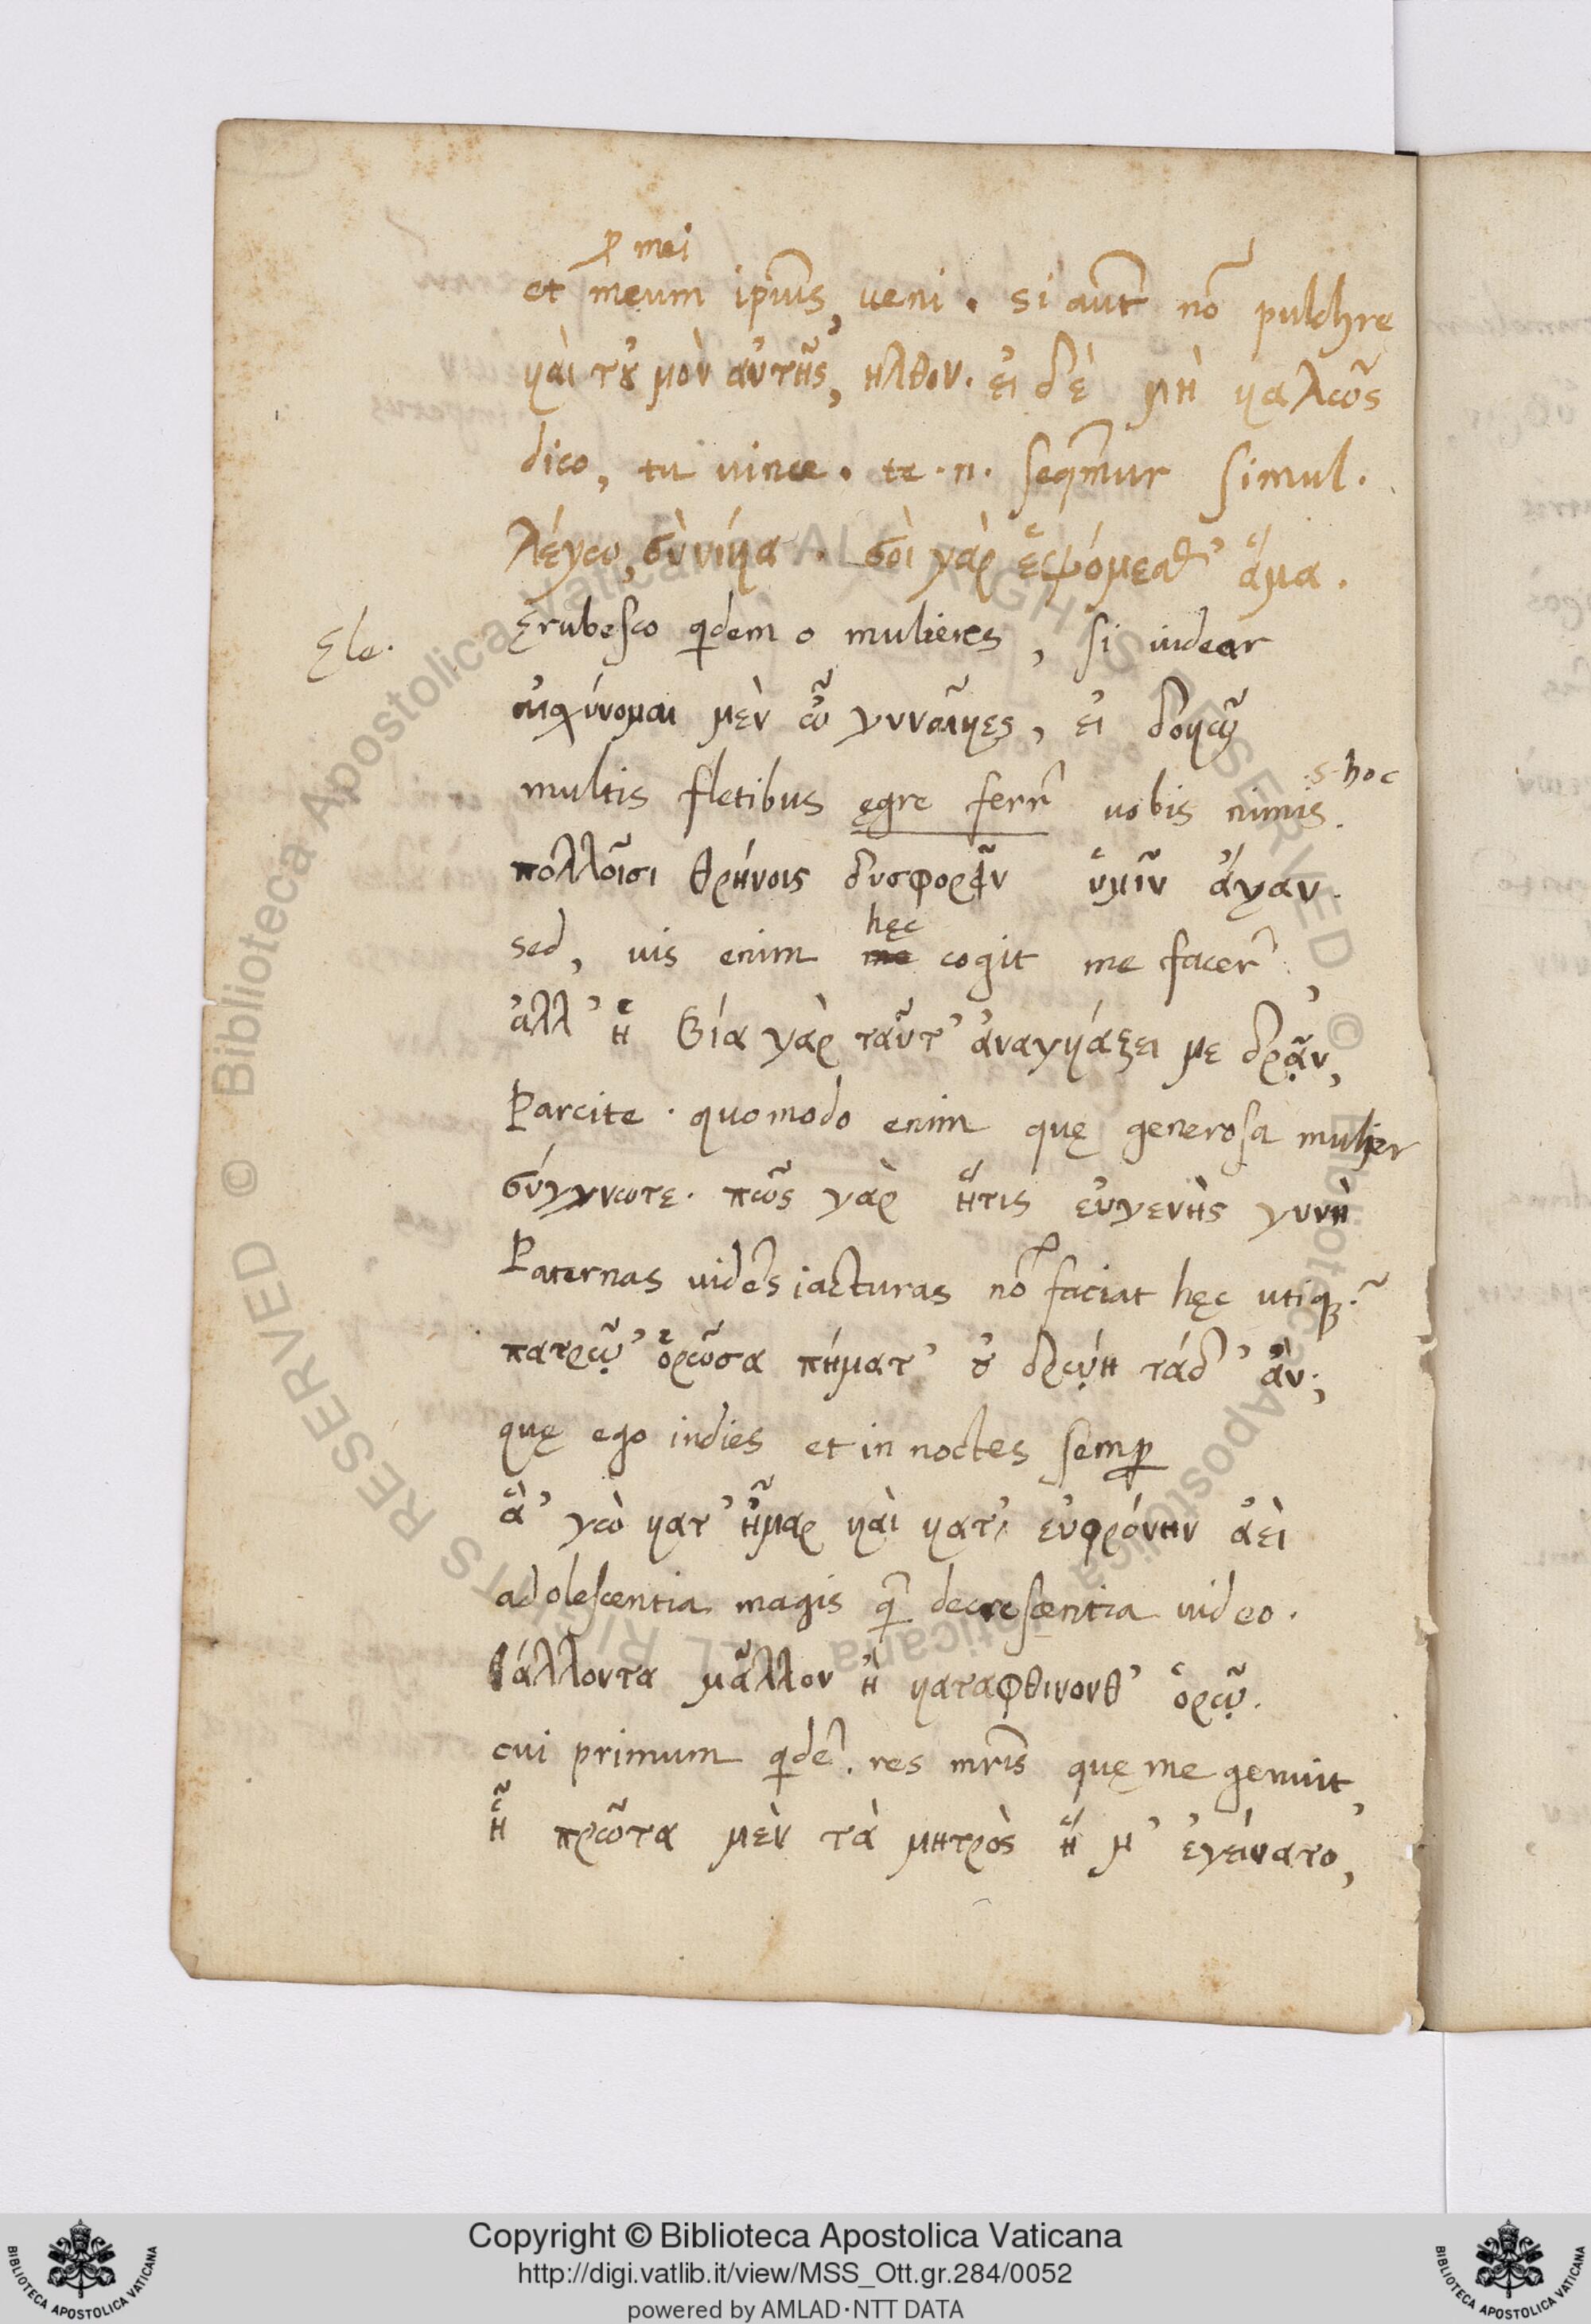 ꝑ mei
et meum ipius, ueni. si aut nõ pulchre
καὶ τοὐμὸν αὐτῆς, ηλθον. εἰ δὲ μὴ καλῶς
dico, tu uince. te .n. seqmur simul.
λέγω, σὺ νίκα. σοὶ γὰρ ἑψόμεσθ' ἅμα.
Ele.
Erubesco qdem o mulieres, si uidear
αἰσχύνομαι μὲν ὦ γυναῖκες, εἰ δοκῶ
.s. hoc
multis fletibus ęgre ferr̃ uobis nimis.
πολλοῖσι θρήνοις δυσφορεῖν ὑμῖν ἄγαν.
hęc
sed, uis enim me cogit me facer̃,
ἀλλ' ἡ βία γὰρ ταῦτ' ἀναγκάζει με δρᾷν,
Parcite. quomodo enim quę generosa mulier
σύγγνωτε. πῶς γὰρ ἥτις εὐγενὴς γυνὴ
Paternas uidẽs iacturas nõ faciat hęc utiqꝫ?
πατρῷ' ὁρῶσα πήματ' οὐ δρῴη τάδ' ἄν;
quę ego indies et in noctes semꝑ
ἃ' γὼ κατ' ἦμαρ καὶ κατ' εὐφρόνην ἀεὶ
adolescentia magis q̃ decrescentia uideo.
θάλλοντα μᾶλλον ἢ καταφθινονθ' ὁρῷ.
cui primum qdẽ. res mris quę me genuit,
ᾗ πρῶτα μὲν τὰ μητρὸς ἥ μ' ἐγείνατο,
Copyright © Biblioteca Apostolica Vaticana
http://digi.vatlib.it/view/MSS_Ott.gr.284/0052
powered by AMLAD·NTT DATA
BIBLIOTECA APOSTOLICA VATICANA
BIBLIOTECA APOSTOLICA VATICANA